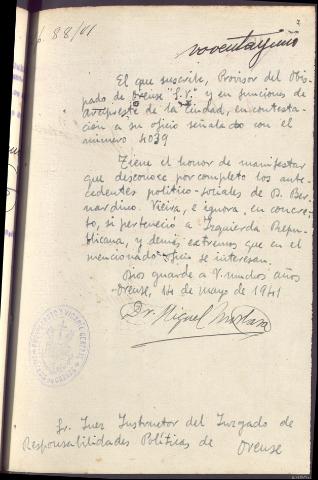 88/41
noventa y uno
El que suscribe, Provisor del Obis-
pado de Orense "S.V." y en funciones de
Arcipreste de la Ciudad, en contesta-
ción a su oficio señalado con el
número 4039
Tiene el honor de manifestar
que desconoce por completo los ante-
cedentes político-sociales de D. Ber-
nardino Vieira, e ignora, en concre-
to, si perteneció a Izquierda Repu-
blicana, y demás extremos que en el
mencionado oficio se interesan.
Dios guarde a V. muchos años
Orense, 14 de mayo de 1941
Dr. Miguel
Sr. Juez Instructor del Juzgado de
Responsabilidades Políticas de Orense